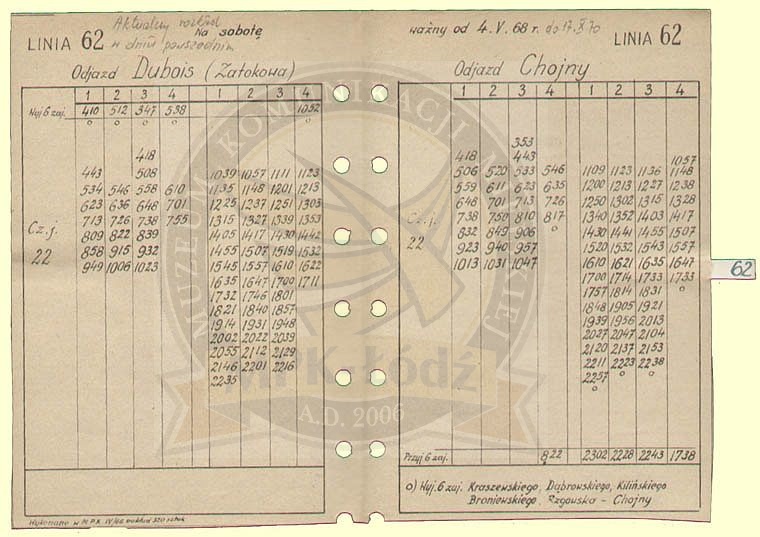 Aktualny rozkład
LINIA 62 Na sobotę
w dniu powszednim
Odjazd Dubois (Zatokowa)
1 2 3 4 1 2 3 4
Wyj 6 zaj. 410 512 347 538 1052
o o o o o
418
443 508 1039 1057 1111 1123
534 546 558 610 1135 1148 1201 1213
623 636 648 701 1225 1237 1251 1303
713 726 738 755 1315 1327 1339 1353
Cz. j. 809 822 839 1405 1417 1430 1442
22 858 915 932 1455 1507 1519 1532
949 1006 1023 1545 1557 1610 1622
1635 1647 1700 1711
1732 1746 1801
1821 1840 1857
1914 1931 1948
2002 2022 2039
2055 2112 2129
2146 2201 2216
2235
Wykonano w M.P.K IV/68 nakład 320 sztuk
ważny od 4. V. 68 r. do 17.X 70
LINIA 62
Odjazd Chojny
1 2 3 4 1 2 3 4
353
418 443 1057
506 520 533 546 1109 1123 1136 1148
559 611 623 635 1200 1213 1227 1238
648 701 713 726 1250 1302 1315 1328
738 750 810 817 1340 1352 1403 1417
Cz. j. 832 849 906 o 1430 1441 1455 1507
22 923 940 957 1520 1532 1543 1557
1013 1031 1047 1610 1621 1635 1647
1700 1714 1733 1733
1757 1814 1831 o
1848 1905 1921
1939 1956 2013
2027 2047 2104
2120 2137 2153
2211 2223 2238
2257 o o
o
Przyj 6 zaj. 822 2302 2228 2243 1738
o) Wyj. 6 zaj. Kraszewskiego, Dąbrowskiego, Kilińskiego
Broniewskiego, Rzgowska - Chojny
62
MUZEUM KOMUNIKACJI MIEJSKIEJ
MPK-Łódź
A.D. 2006